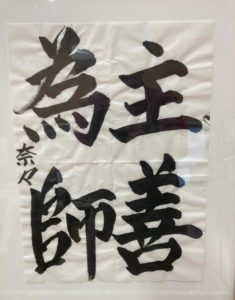 主善
為師
奈々